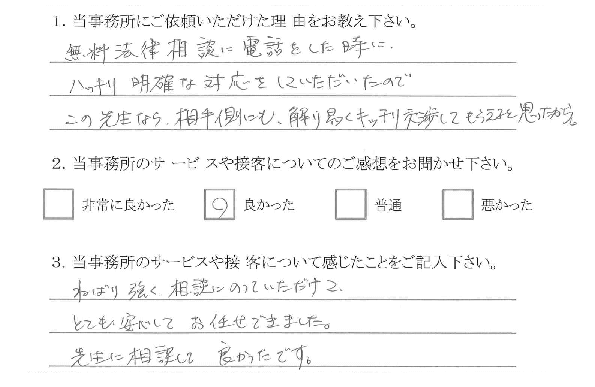 1. 当事務所にご依頼いただけた理由をお教え下さい。
無料法律相談に電話をした時に、
ハッキリ明確な対応をしていただいたので
この先生なら、相手側にも、解り易くキッチリ交渉してもらえると思ったから。
2. 当事務所のサービスや接客についてのご感想をお聞かせ下さい。
非常に良かった 良かった 普通 悪かった
3. 当事務所のサービスや接客について感じたことをご記入下さい。
ねばり強く相談にのっていただけて、
とても安心してお任せできました。
先生に相談して良かったです。